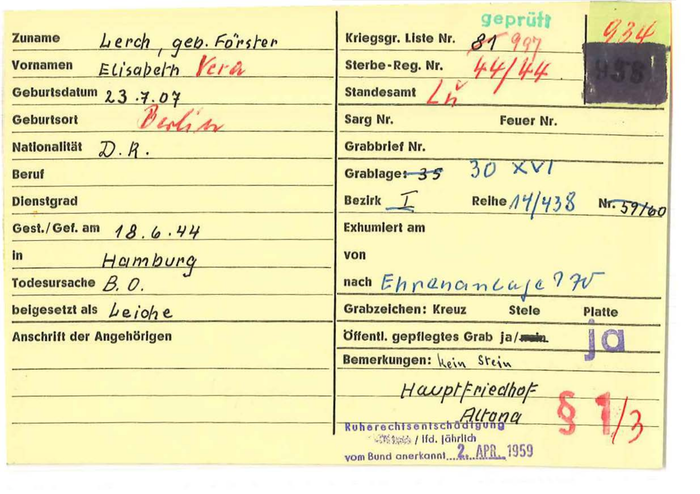 geprüft
Zuname Lerch, geb. Förster
Vornamen Elisabeth Vera
Geburtsdatum 23.7.07
Geburtsort Berlin
Nationalität D.R.
Beruf
Dienstgrad
Gest./Gef. am 18.6.44
in Hamburg
Todesursache B.O.
beigesetzt als Leiche
Anschrift der Angehörigen
Kriegsgr. Liste Nr. 81 997
934
938
Sterbe-Reg. Nr. 44/44
Standesamt Lü
Sarg Nr. Feuer Nr.
Grabbrief Nr.
Grablage: 35 30 XVI
Bezirk I Reihe 14/438 Nr. 59/60
Exhumiert am
von
nach Ehrenanlage
Grabzeichen: Kreuz Stele Platte
Öffentl. gepflegtes Grab ja/nein. ja
Bemerkungen: kein Stein
Hauptfriedhof
Altona
§ 1/3
Ruherechtsentschädigung
/ lfd. jährlich
vom Bund anerkannt 2. APR. 1959